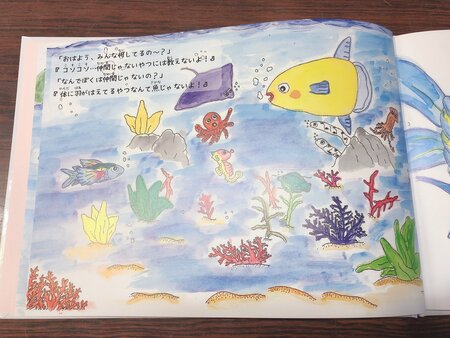 「おはよう、みんな何してるの～？」
『コソコソ…仲間じゃないやつには教えないよ！』
「なんでぼくは仲間じゃないの？」
『体に羽がはえてるやつなんて魚じゃないよ！』